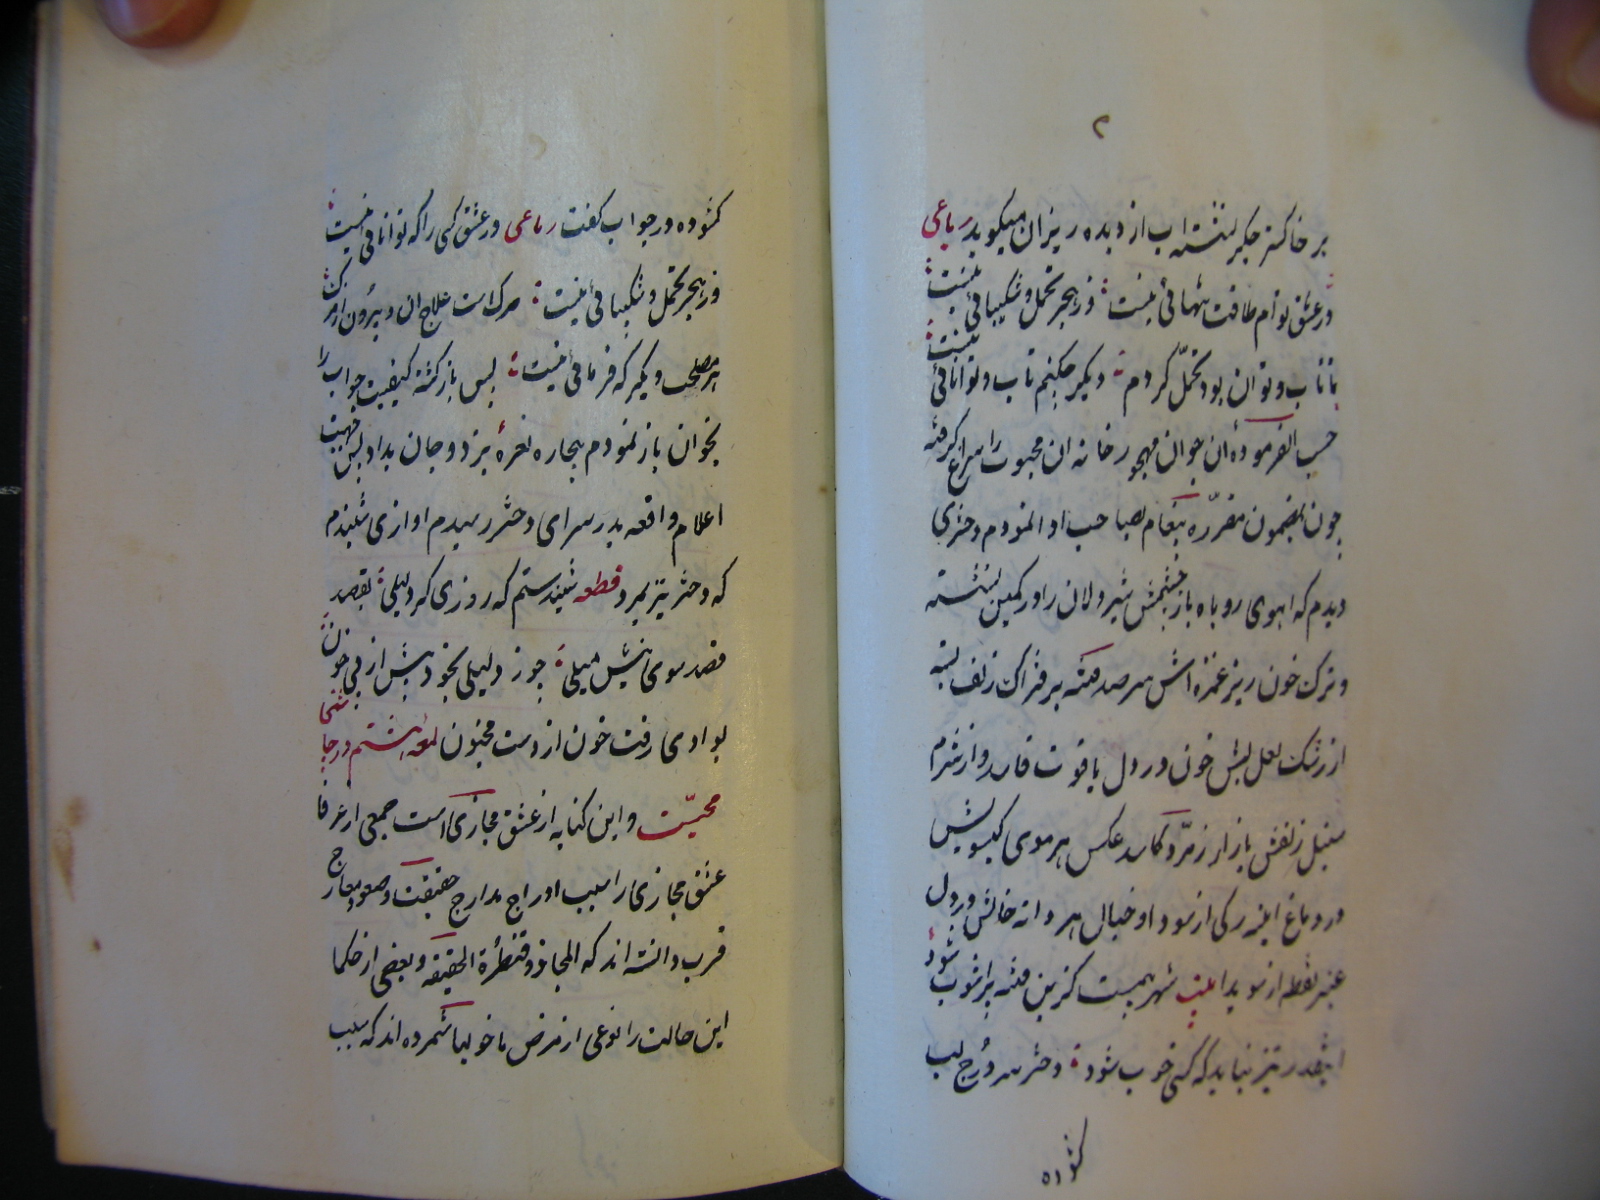 ۲
بر خاکستر جگر نشسته اب از دیده ریزان میکوید رباعی
در عشق توام طاقت تنهائی نیست در هجر تحمل و شکیبائی نیست
تا تاب و توان بود تحمّل کردم دیگر چکنم تاب و توانائی نیست
حسب الفرموده ان جوان مهجور خانه ان محبوب را سراغ کرفته
چون بمضمون مقرّره پیغام بصاحب ادا نمودم دختری
دیدم که اهوی روباه باز چشمش شیردلان را در کمین نشسته
و ترک خون ریز غمزه اش سر صد فتنه بر فتراک زلف بسته
از رشک لعل لبش خون در دل یاقوت و از شرم
سنبل زلفش بازار زمرّد کاسد عکس هر موی کیسویش
در دماغ اینه رکی از سودا و خیال هر دانه خالش در دل
عنبر نقطه از سویدا بیت شهریست کزین فتنه پراشوب شود
اینقدر نیز نباید که کسی خوب شود دختر سر دُرج لب
کشوده
کشوده در جواب کفت رباعی در عشق کسی را که توانائی نیست
در هجر تحمل و شکیبائی نیست مرک است علاج ان و بیرون از مرک
هر مصلحت دیگر که فرمائی نیست پس باز کشته کیفیت جواب را
بجوان باز نمودم بیچاره نعرهٔ بزد و جان بداد پس بجهت
اعلام واقعه بدر سرای دختر رسیدم اوازی شنیدم
که دختر نیز بمرد قطعه شنیدستم که روزی کرد لیلی بقصد
فصد سوی نیش میلی چو زد لیلی بخود نیش از پی خون
بوادی رفت خون از دست مجنون لمعه هشتم در جاشنی
محبّت و این کنایه از عشق مجازی است جمعی از عرفا
عشق مجازی را سبب ادراج مدارج حقیقت و صعود معارج
قرب دانسته اند که المجاز قنطرة الحقیقه و بعضی از حکما
این حالت را نوعی از مرض ماخولیا شمرده اند که سبب